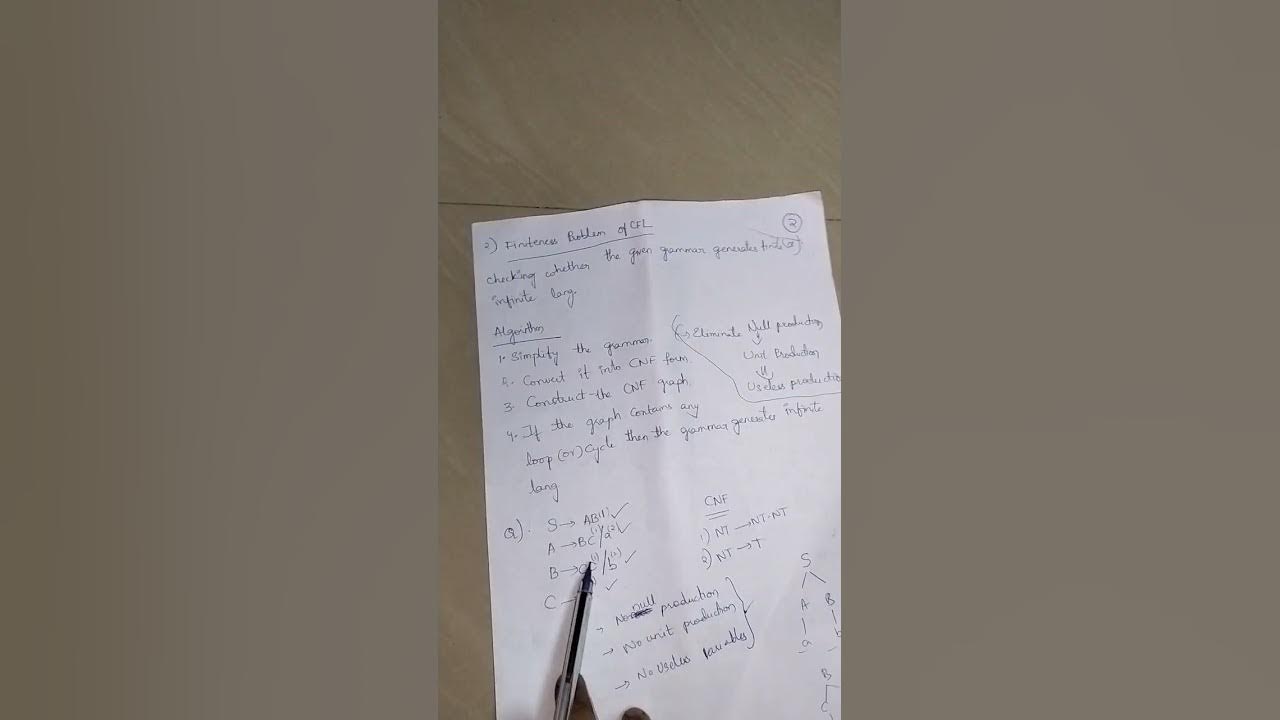 2) Finiteness Problem of CFL
2
checking whether the given grammar generates finite (or)
infinite lang.
Algorithm
1. Simplify the grammar.
2. Convert it into CNF form.
3. Construct the CNF graph.
4. If the graph contains any
loop (or) Cycle then the grammar generates infinite
lang
Eliminate Null production
Unit Production
Useless production
Q).
S → AB(1) ✓
A → BC(1)/a(2) ✓
B → (1)/b(2) ✓
C → ✓
CNF
1) NT → NT.NT
2) NT → T
→ No null production
→ No unit production
→ No Useless variables
S
A B
a b
B
C